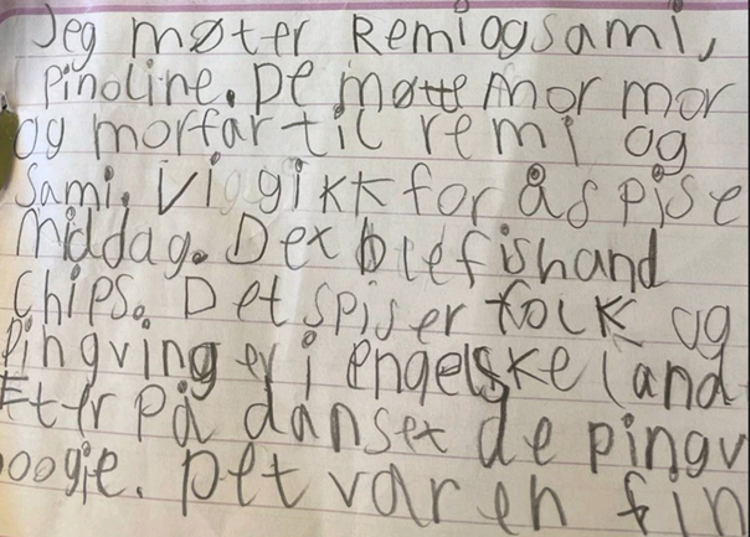 Jeg møter Remi og sami,
Pinoline. De møtte mor mor
og morfar til remi og
Sami. Vi gikk for å spise
middag. Det blef ish and
Chips. Det spiser folk og
Pingvinger i engelske land
Etter på danset de pingv
oogie. Det var en fin